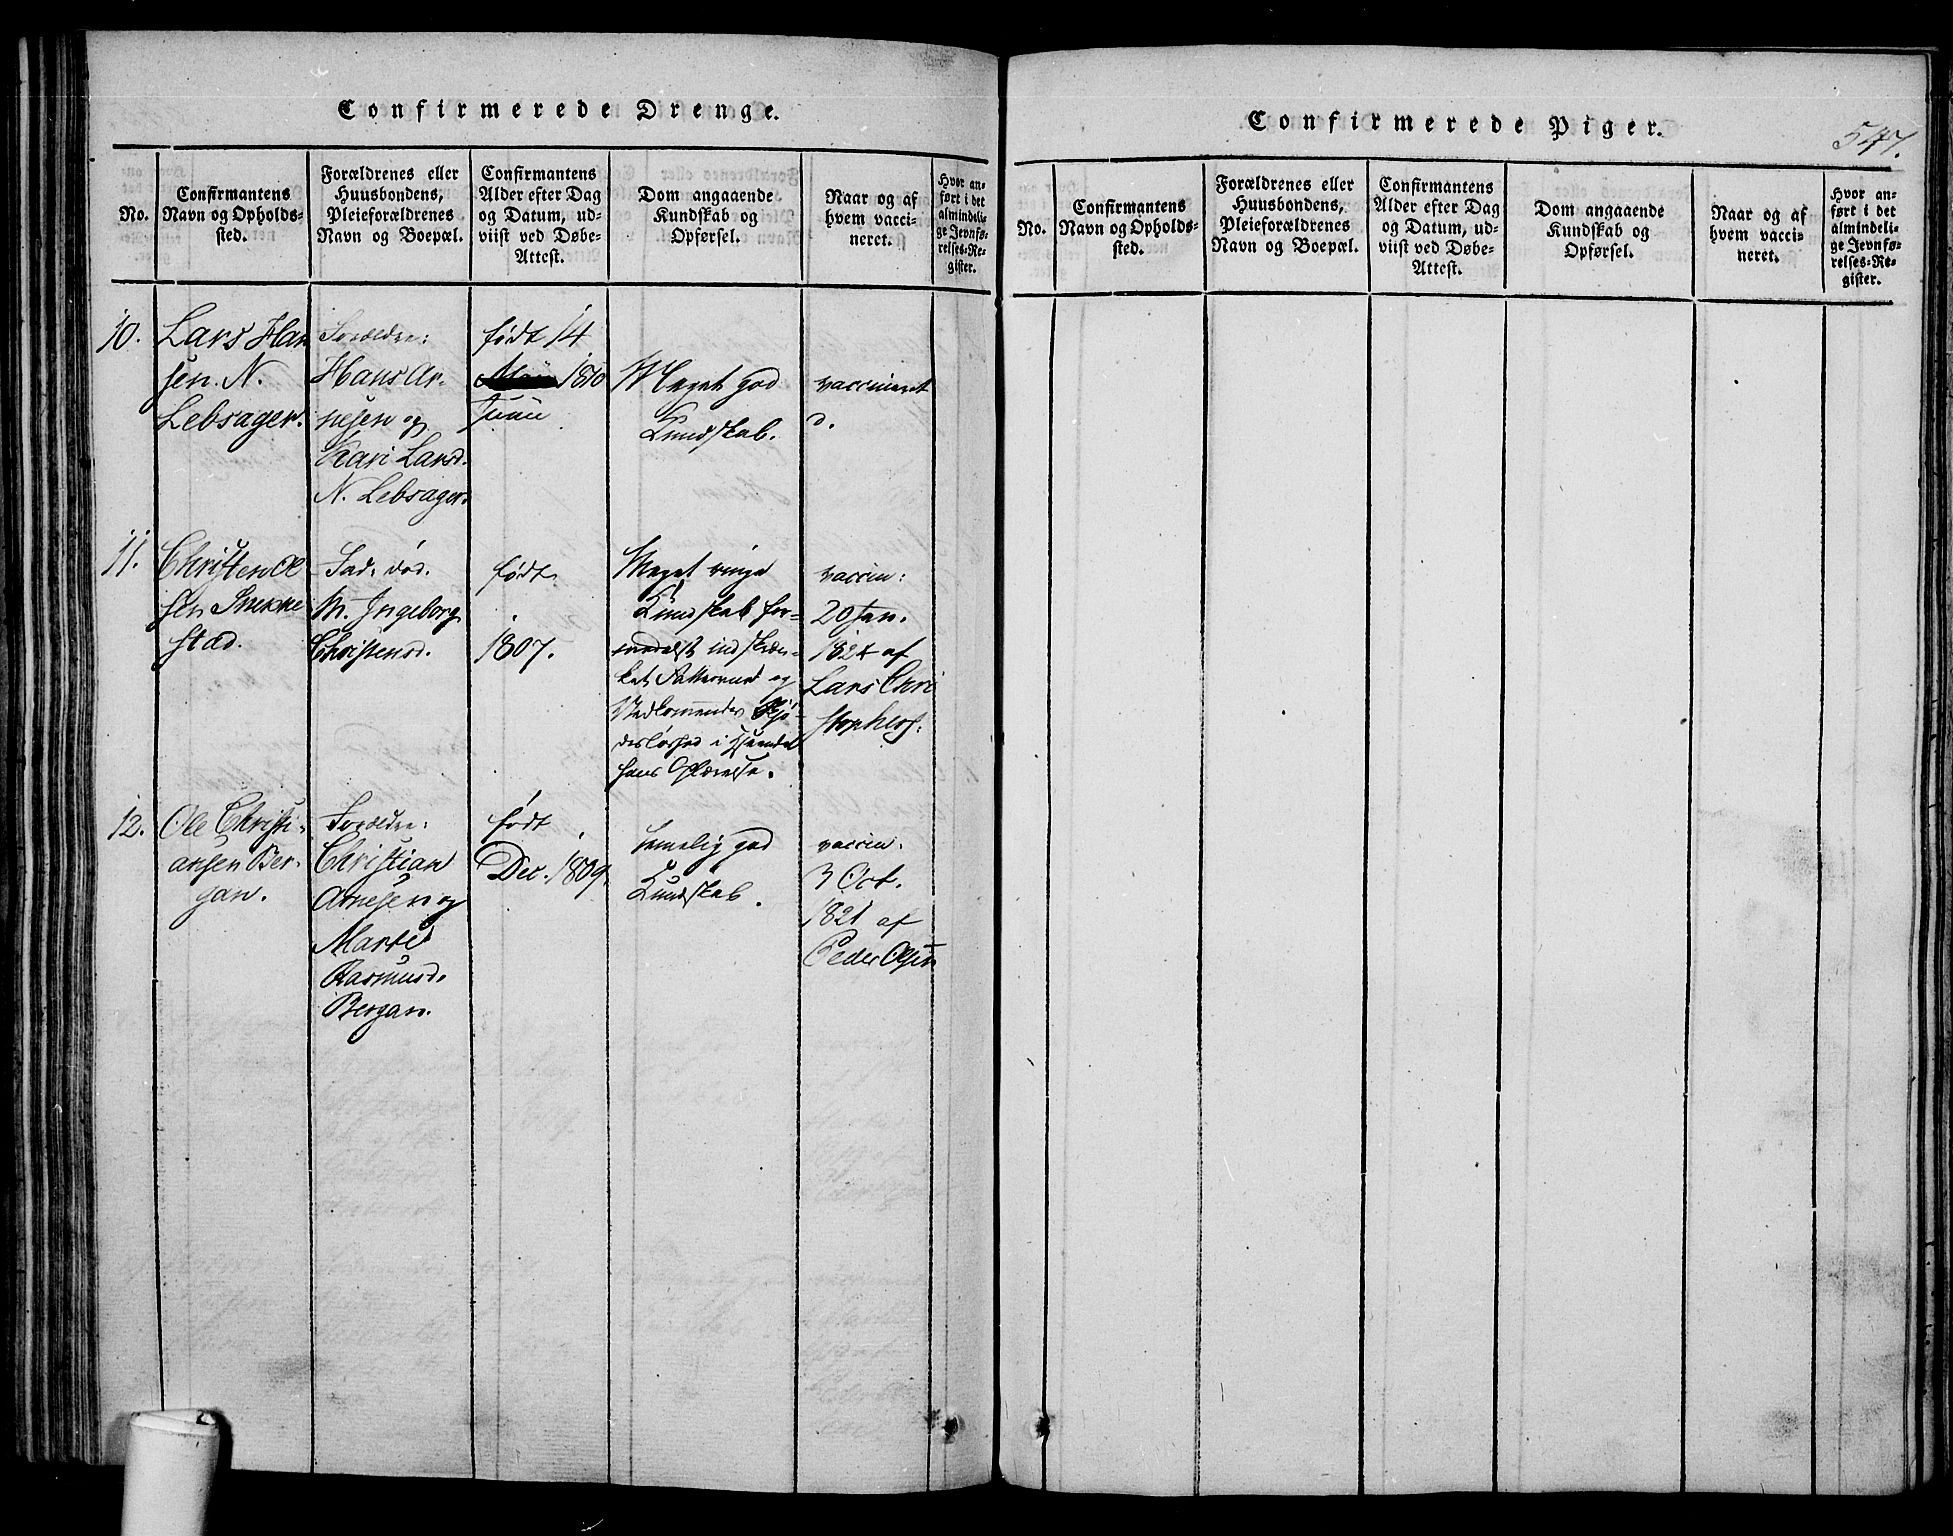 Confirmerede Drenge.
No.
Confirmantens
Navn og Opholds-
sted.
Forældrenes eller
Huusbondens,
Pleieforældrenes
Navn og Boepæl.
Confirmantens
Alder efter Dag
og Datum, ud-
viist ved Døbe-
Attest.
Dom angaaende
Kundskab og
Opførsel.
Naar og af
hvem vacci-
neret.
Hvor an-
ført i det
almindeli-
ge Jevnfø-
relses-Re-
gister.
10.
Lars Han
sen N.
Lebsager.
Forældre:
Hans Ar-
nesen og
Kari Larsd.
N. Lebsager.
født 14
1810
Juni
Meget god
Kundskab.
vaccineret
d.
11.
Christen Ol
sen Snekke
stad.
Fad. død.
M. Ingeborg
Christensd.
født
1807.
Meget ringe
Kundskab for-
medelst indskræn-
ket Fatteevne og
Vedkommendes
i
hans Oplærelse.
vaccin:
20 Jan.
1824 af
Lars Chri
stophers:
12.
Ole Christi-
ansen Ber-
gan.
Forældre:
Christian
Arnesen og
Marte
Rasmusd.
Bergan.
født
Dec. 1809.
temelig god
Kundskab.
vaccin.
3 Oct.
1821 af
Peder Olsen
Confirmerede Piger.
547.
No.
Confirmantens
Navn og Opholds-
sted.
Forældrenes eller
Huusbondens,
Pleieforældrenes
Navn og Boepæl.
Confirmantens
Alder efter Dag
og Datum, ud-
viist ved Døbe-
Attest.
Dom angaaende
Kundskab og
Opførsel.
Naar og af
hvem vacci-
neret.
Hvor an-
ført i det
almindeli-
ge Jevnfø-
relses-Re-
gister.